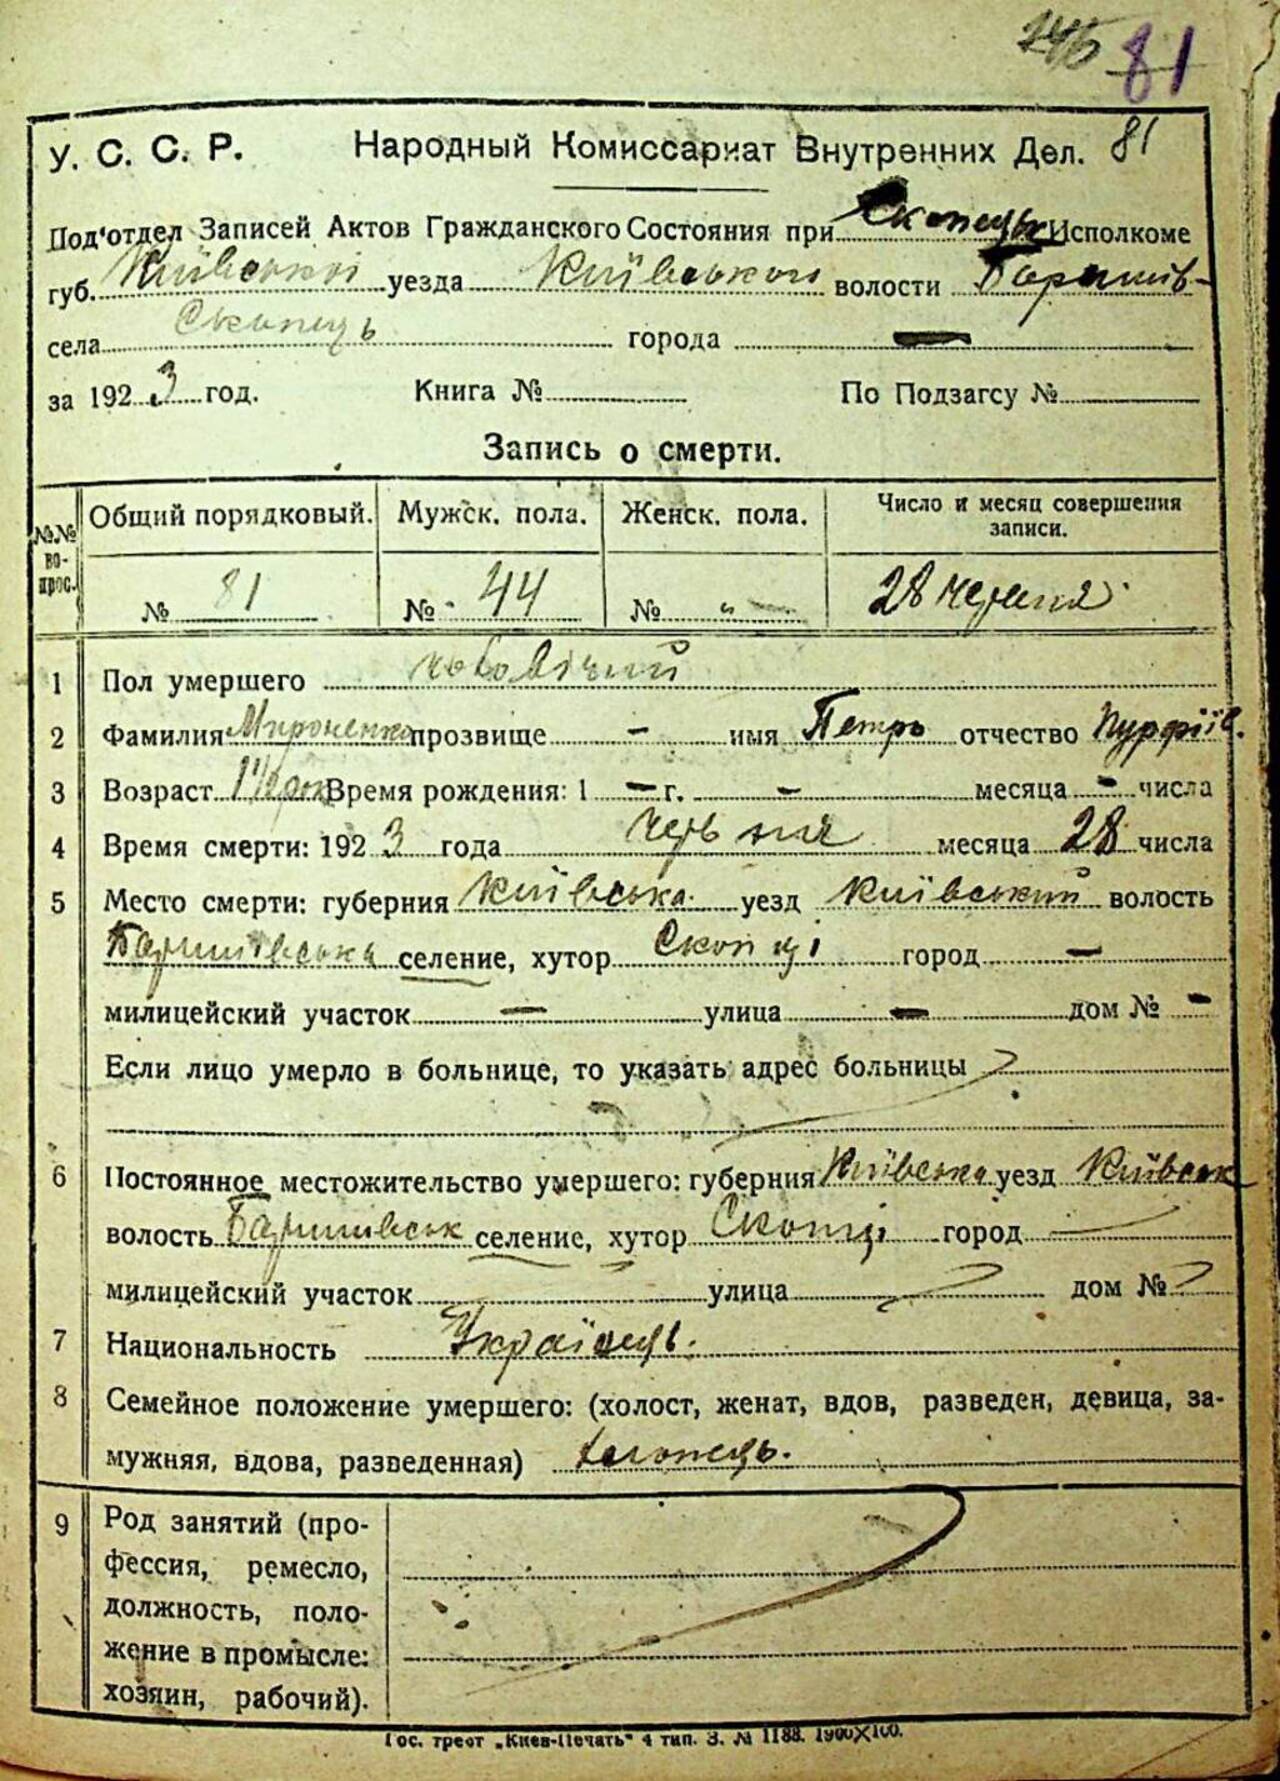 81
У. С. С. Р. Народный Комиссариат Внутренних Дел. 81
Под'отдел Записей Актов Гражданского Состояния при Исполкоме
губ. Київської уезда Київського волости Баришів-
села Скопець города —
за 1923 год. Книга № По Подзагсу №
Запись о смерти.
№№ вопрос. Общий порядковый. Мужск. пола. Женск. пола. Число и месяц совершения записи.
№ 81 № 44 № " 28 червня
1 Пол умершего чоловічий
2 Фамилия Мироненко прозвище - имя Петро отчество
3 Возраст Время рождения: 1 — г. - месяца - числа
4 Время смерти: 1923 года червня месяца 28 числа
5 Место смерти: губерния Київська уезд Київський волость
Баришівська селение, хутор Скопці город —
милицейский участок — улица — дом № -
Если лицо умерло в больнице, то указать адрес больницы
6 Постоянное местожительство умершего: губерния Київська уезд Київськ
волость Баришівськ селение, хутор Скопці город —
милицейский участок улица дом №
7 Национальность Українець.
8 Семейное положение умершего: (холост, женат, вдов, разведен, девица, за-
мужняя, вдова, разведенная) хлопець.
9 Род занятий (про-
фессия, ремесло,
должность, поло-
жение в промысле:
хозяин, рабочий).
Гос. трест „Киев-Печать" 4 тип. З. № 1188. 1900X100.